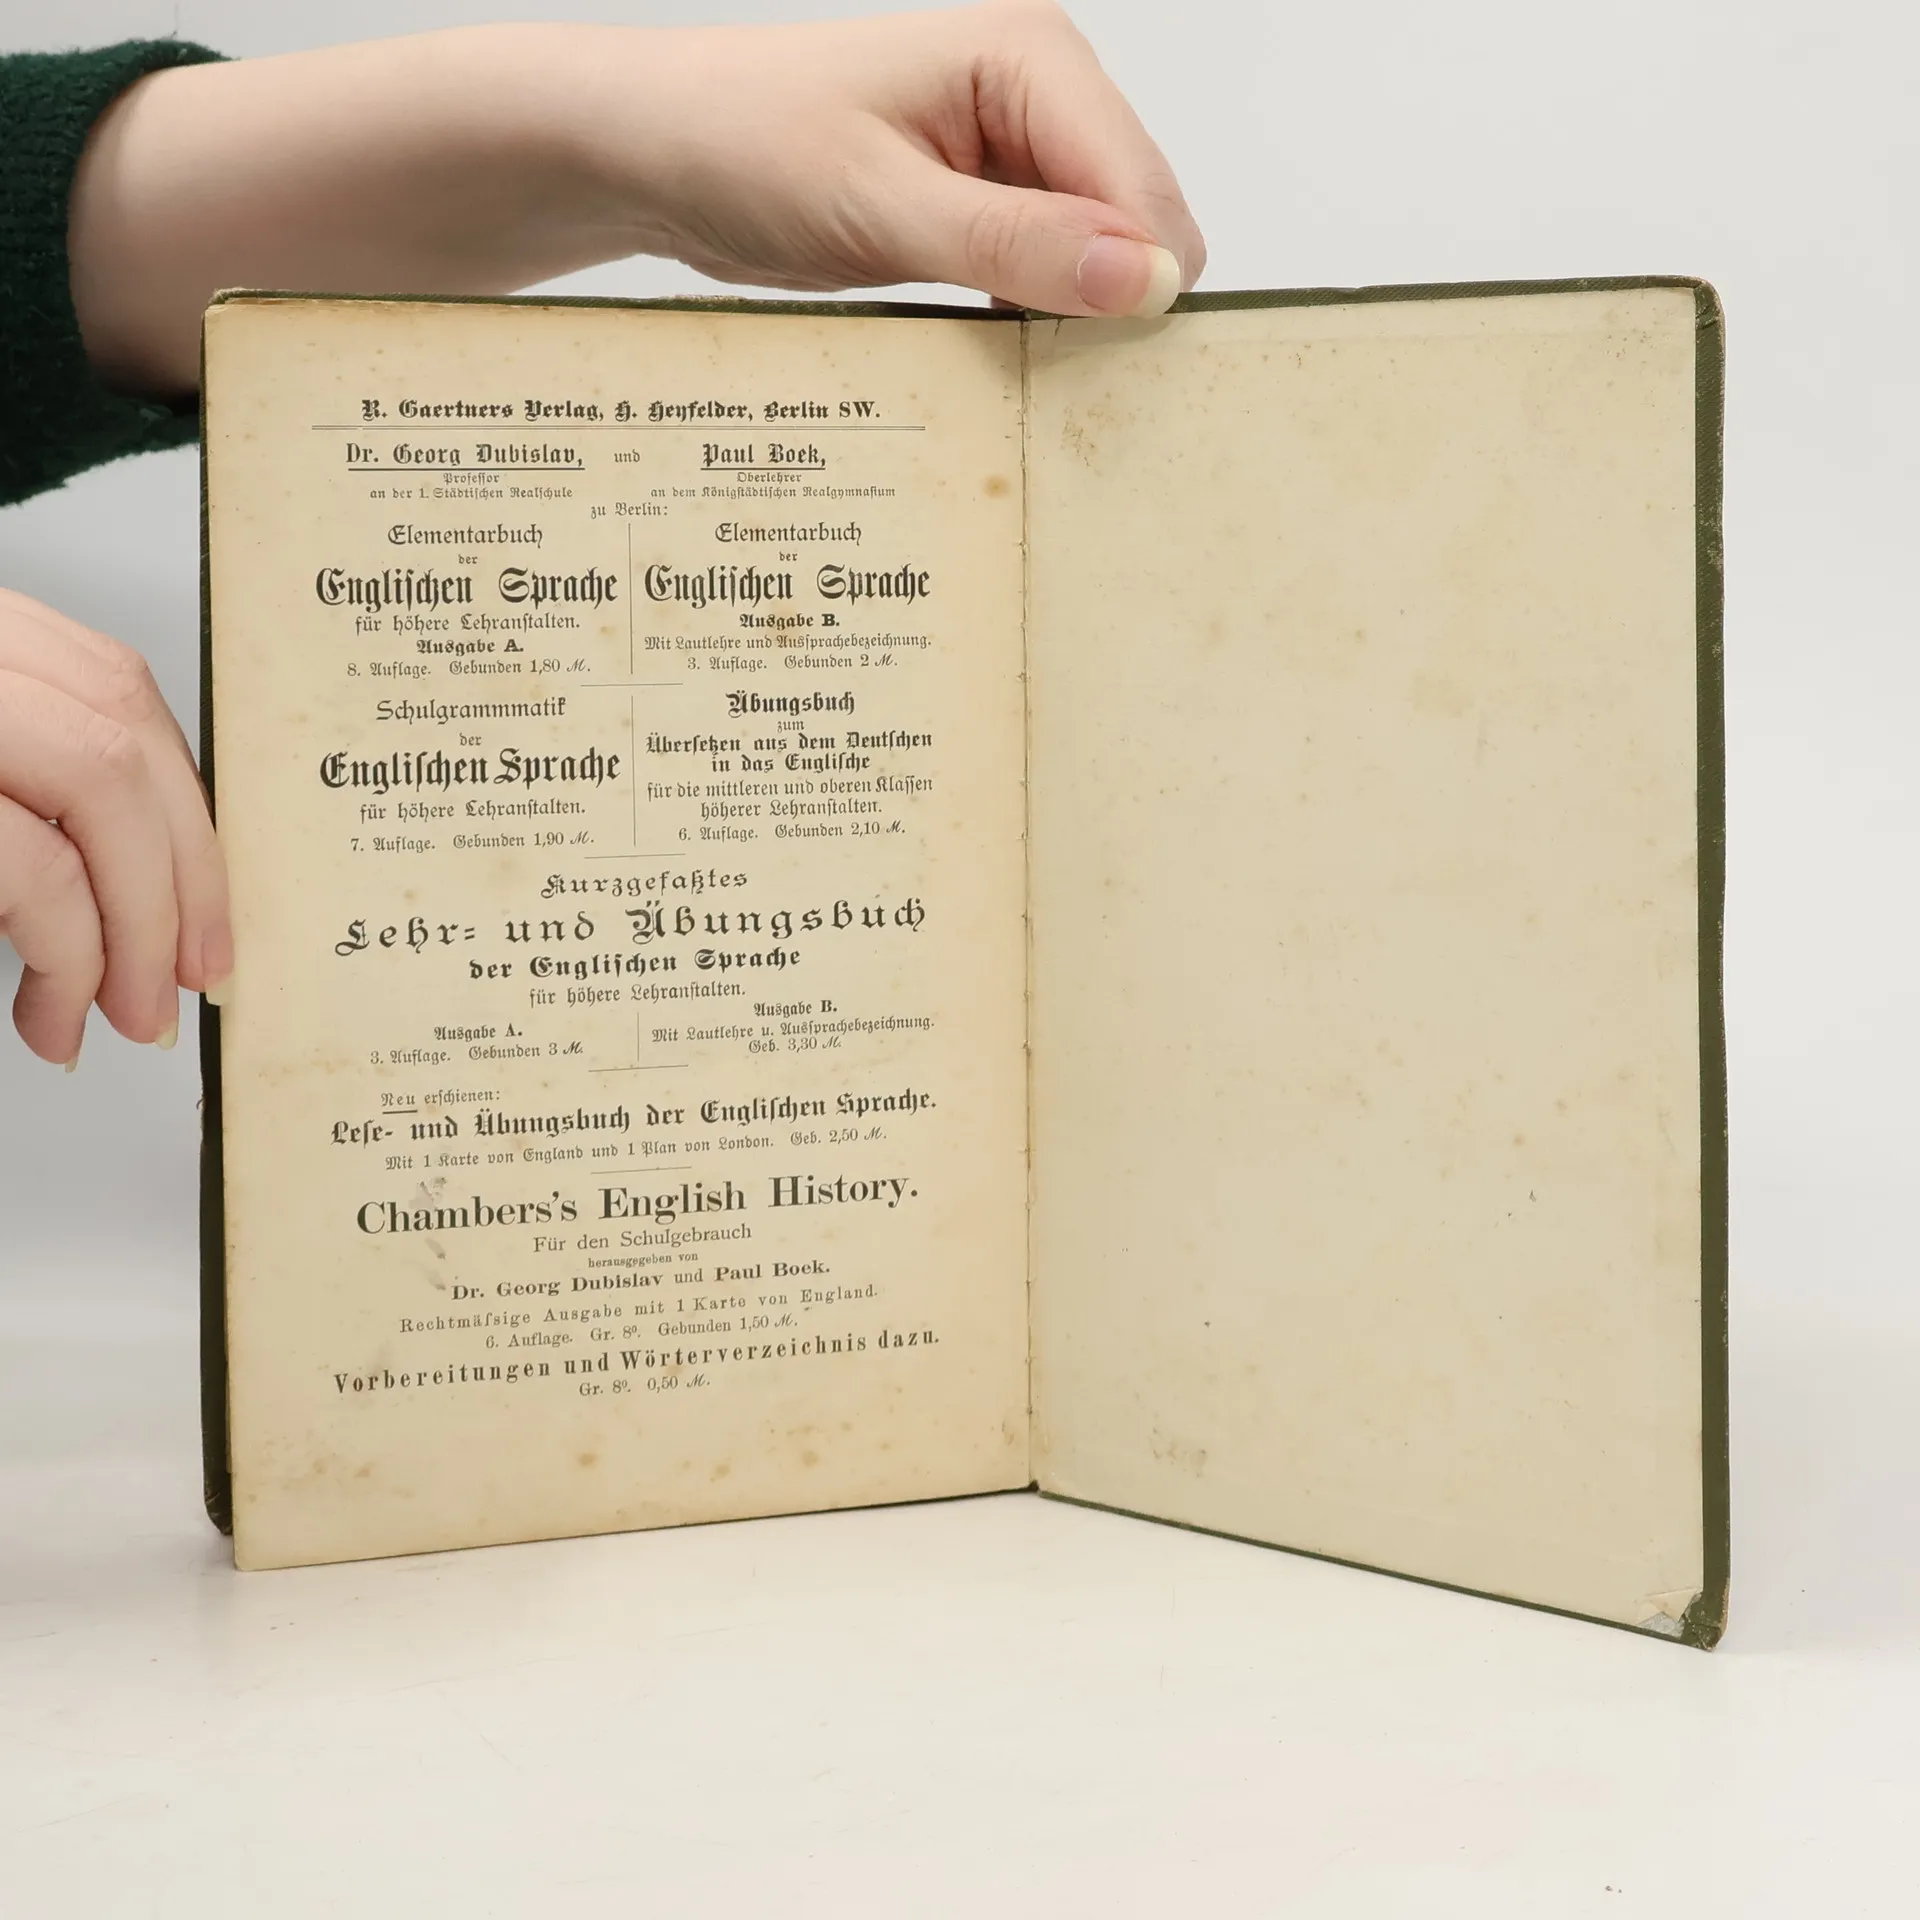 R. Gaertners Verlag, H. Heyfelder, Berlin SW.
Dr. Georg Dubislav, und Paul Boek,
Professor
an der 1. Städtischen Realschule
Oberlehrer
an dem Königstädtischen Realgymnasium
zu Berlin:
Elementarbuch
der
Englischen Sprache
für höhere Lehranstalten.
Ausgabe A.
8. Auflage. Gebunden 1,80 M.
Elementarbuch
der
Englischen Sprache
Ausgabe B.
Mit Lautlehre und Aussprachebezeichnung.
3. Auflage. Gebunden 2 M.
Schulgrammmatik
der
Englischen Sprache
für höhere Lehranstalten.
7. Auflage. Gebunden 1,90 M.
Übungsbuch
zum
Übersetzen aus dem Deutschen
in das Englische
für die mittleren und oberen Klassen
höherer Lehranstalten.
6. Auflage. Gebunden 2,10 M.
Kurzgefaßtes
Lehr- und Übungsbuch
der Englischen Sprache
für höhere Lehranstalten.
Ausgabe A.
3. Auflage. Gebunden 3 M.
Ausgabe B.
Mit Lautlehre u. Aussprachebezeichnung.
Geb. 3,30 M.
Neu erschienen:
Lese- und Übungsbuch der Englischen Sprache.
Mit 1 Karte von England und 1 Plan von London. Geb. 2,50 M.
Chambers's English History.
Für den Schulgebrauch
herausgegeben von
Dr. Georg Dubislav und Paul Boek.
Rechtmäſsige Ausgabe mit 1 Karte von England.
6. Auflage. Gr. 8º. Gebunden 1,50 M.
Vorbereitungen und Wörterverzeichnis dazu.
Gr. 8º. 0,50 M.